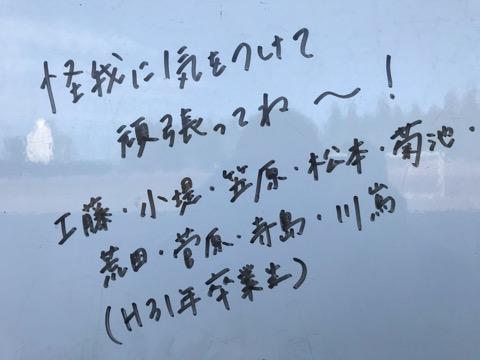 怪我に気をつけて
頑張ってね〜!
工藤・小堤・笠原・松本・菊池・
荒田・菅原・寺島・川嶌
(H31年卒業生)